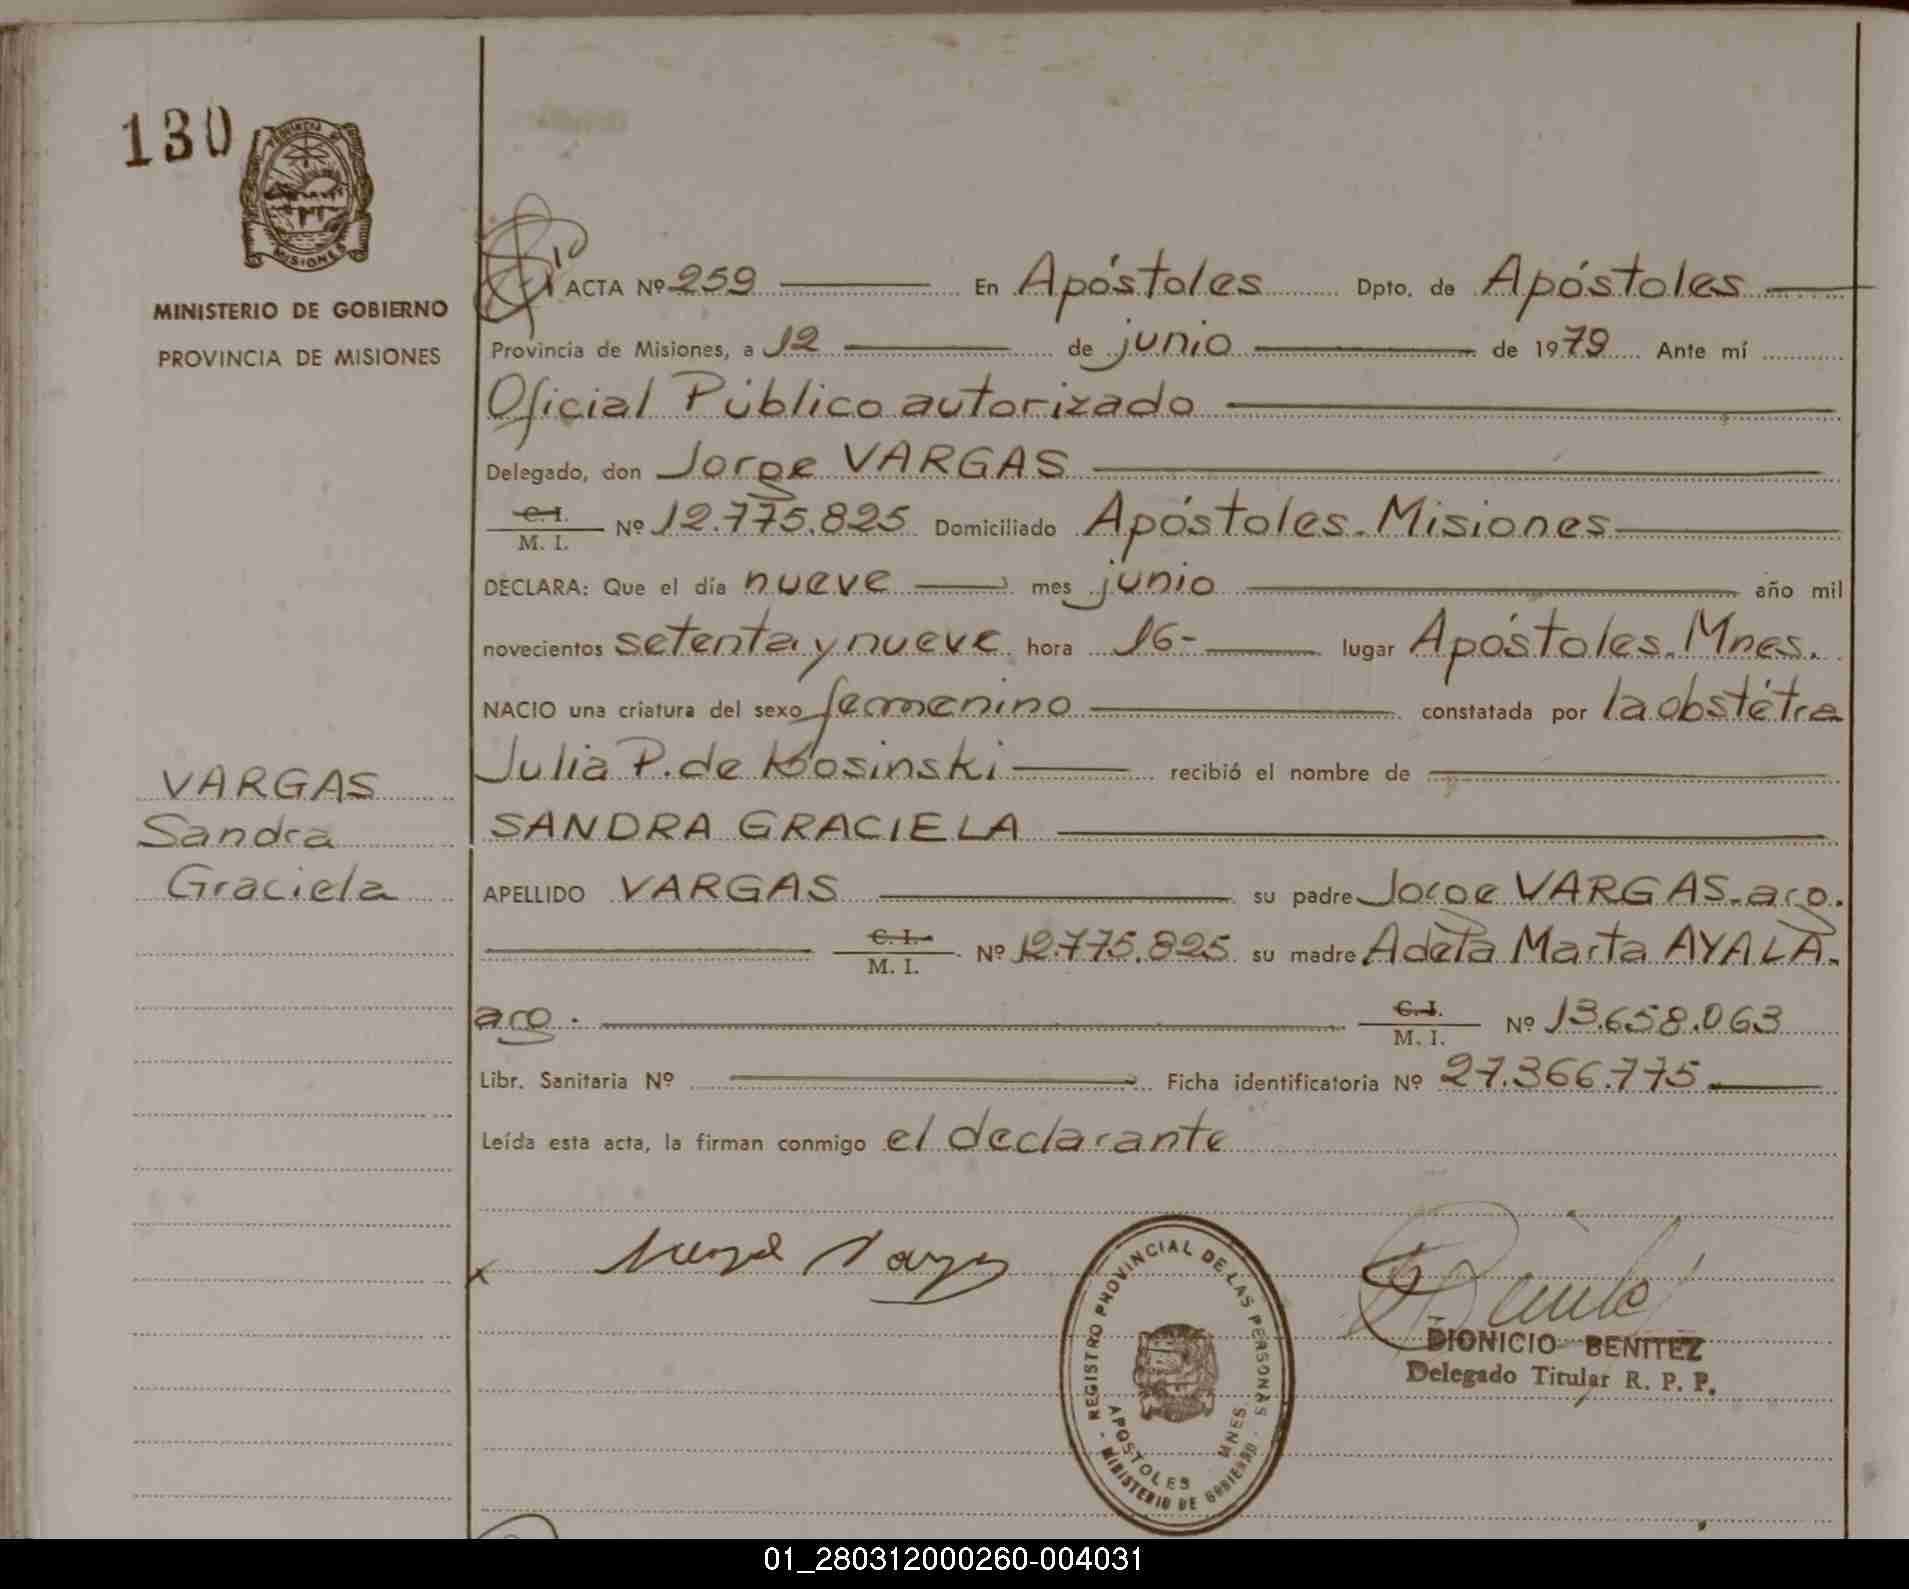 130
PROVINCIA DE
MISIONES
MINISTERIO DE GOBIERNO
PROVINCIA DE MISIONES
ACTA Nº 259 En Apóstoles Dpto. de Apóstoles
Provincia de Misiones, a 12 de junio de 1979 Ante mí
Oficial Público autorizado
Delegado, don Jorge VARGAS
C. I.
M. I. Nº 12.775.825 Domiciliado Apóstoles. Misiones
DECLARA: Que el día nueve mes junio año mil
novecientos setenta y nueve hora 16- lugar Apóstoles. Mnes.
NACIO una criatura del sexo femenino constatada por la obstétra
Julia P. de Kosinski recibió el nombre de
VARGAS
Sandra
Graciela
SANDRA GRACIELA
APELLIDO VARGAS su padre Jorge VARGAS. arg.
C. I.
M. I. Nº 12.775.825 su madre Adela Marta AYALA.
arg.
C. I.
M. I. Nº 13.658.063
Libr. Sanitaria Nº Ficha identificatoria Nº 27.366.775
Leída esta acta, la firman conmigo el declarante
REGISTRO PROVINCIAL DE LAS PERSONAS
APOSTOLES MNES.
- MINISTERIO DE GOBIERNO -
DIONICIO BENITEZ
Delegado Titular R. P. P.
01_280312000260-004031